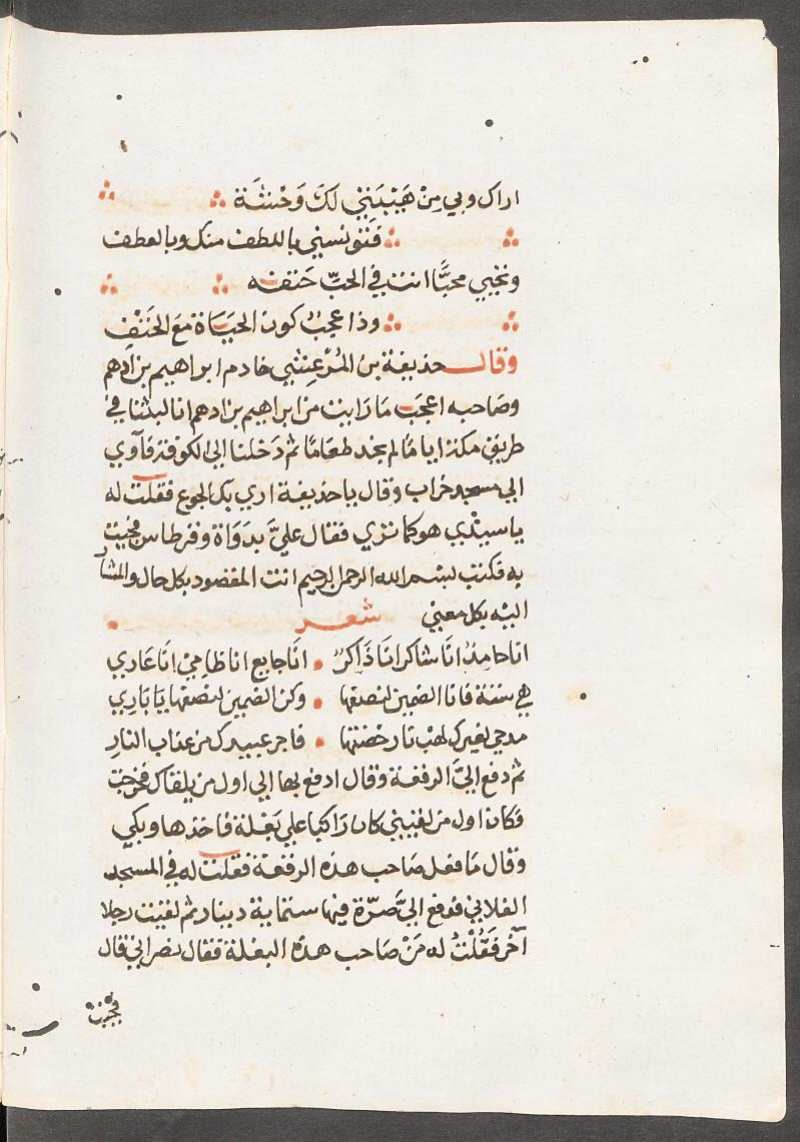 اراك وبي مِنْ هَيْبَتِي لكَ وَحْشَة
فَتُونسني باللطف منك وبالعطف
وتحيي محبًّا انت في الحبّ حَتفه
وذا عجبٌ كون الحيَاة مَعَ الحَتْفِ
وقال حذيفة بن المُرْعِشي خادم ابراهيم بن ادهم
وصَاحبه اعجَب مَا رَايت من ابراهيم بن ادهم انا لبثنا في
طريق مكة ايامًا لم نجد طعَامًا ثم دَخلنا الي الكوفة فآوي
الي مسجد خراب وقال يا حذيفة اري بك الجوع فقلت له
يا سيدي هو كما تري فقال عليَّ بدَوَاة وقرطاس فجيت
به فكتب بسم الله الرحمن الرحيم انت المقصود بكل حال والمشار
اليه بكل معني شعر
انا حامدٌ انَا شاكر انَا ذَاكرٌ • انَا جايع انا ظامئ انَا عَاري
هي ستة فانا الضمين لنصفها • وكن الضمين لنصفها يَا بَارِي
مدحي لغيرك لهب نار خضتها • فاجر عبيدك من عذاب النارِ
ثم دفع اليَّ الرقعة وقال ادفع بها الي اول من يلقاك فخرجت
فكان اول من لقيني كان رَاكبا علي بَغلة فاخذها وبكي
وقال مَا فعل صَاحب هذه الرقعة فقلت له في المسجد
الفلاني فدفع اليَّ صرّة فيها ستماية دينار ثم لقيت رجلا
آخر فَقُلْتُ له مَنْ صَاحب هذه البغلة فقال نصراني قال
فجئت